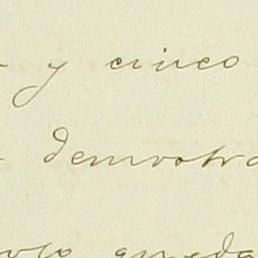 y cinco
demostra
queda